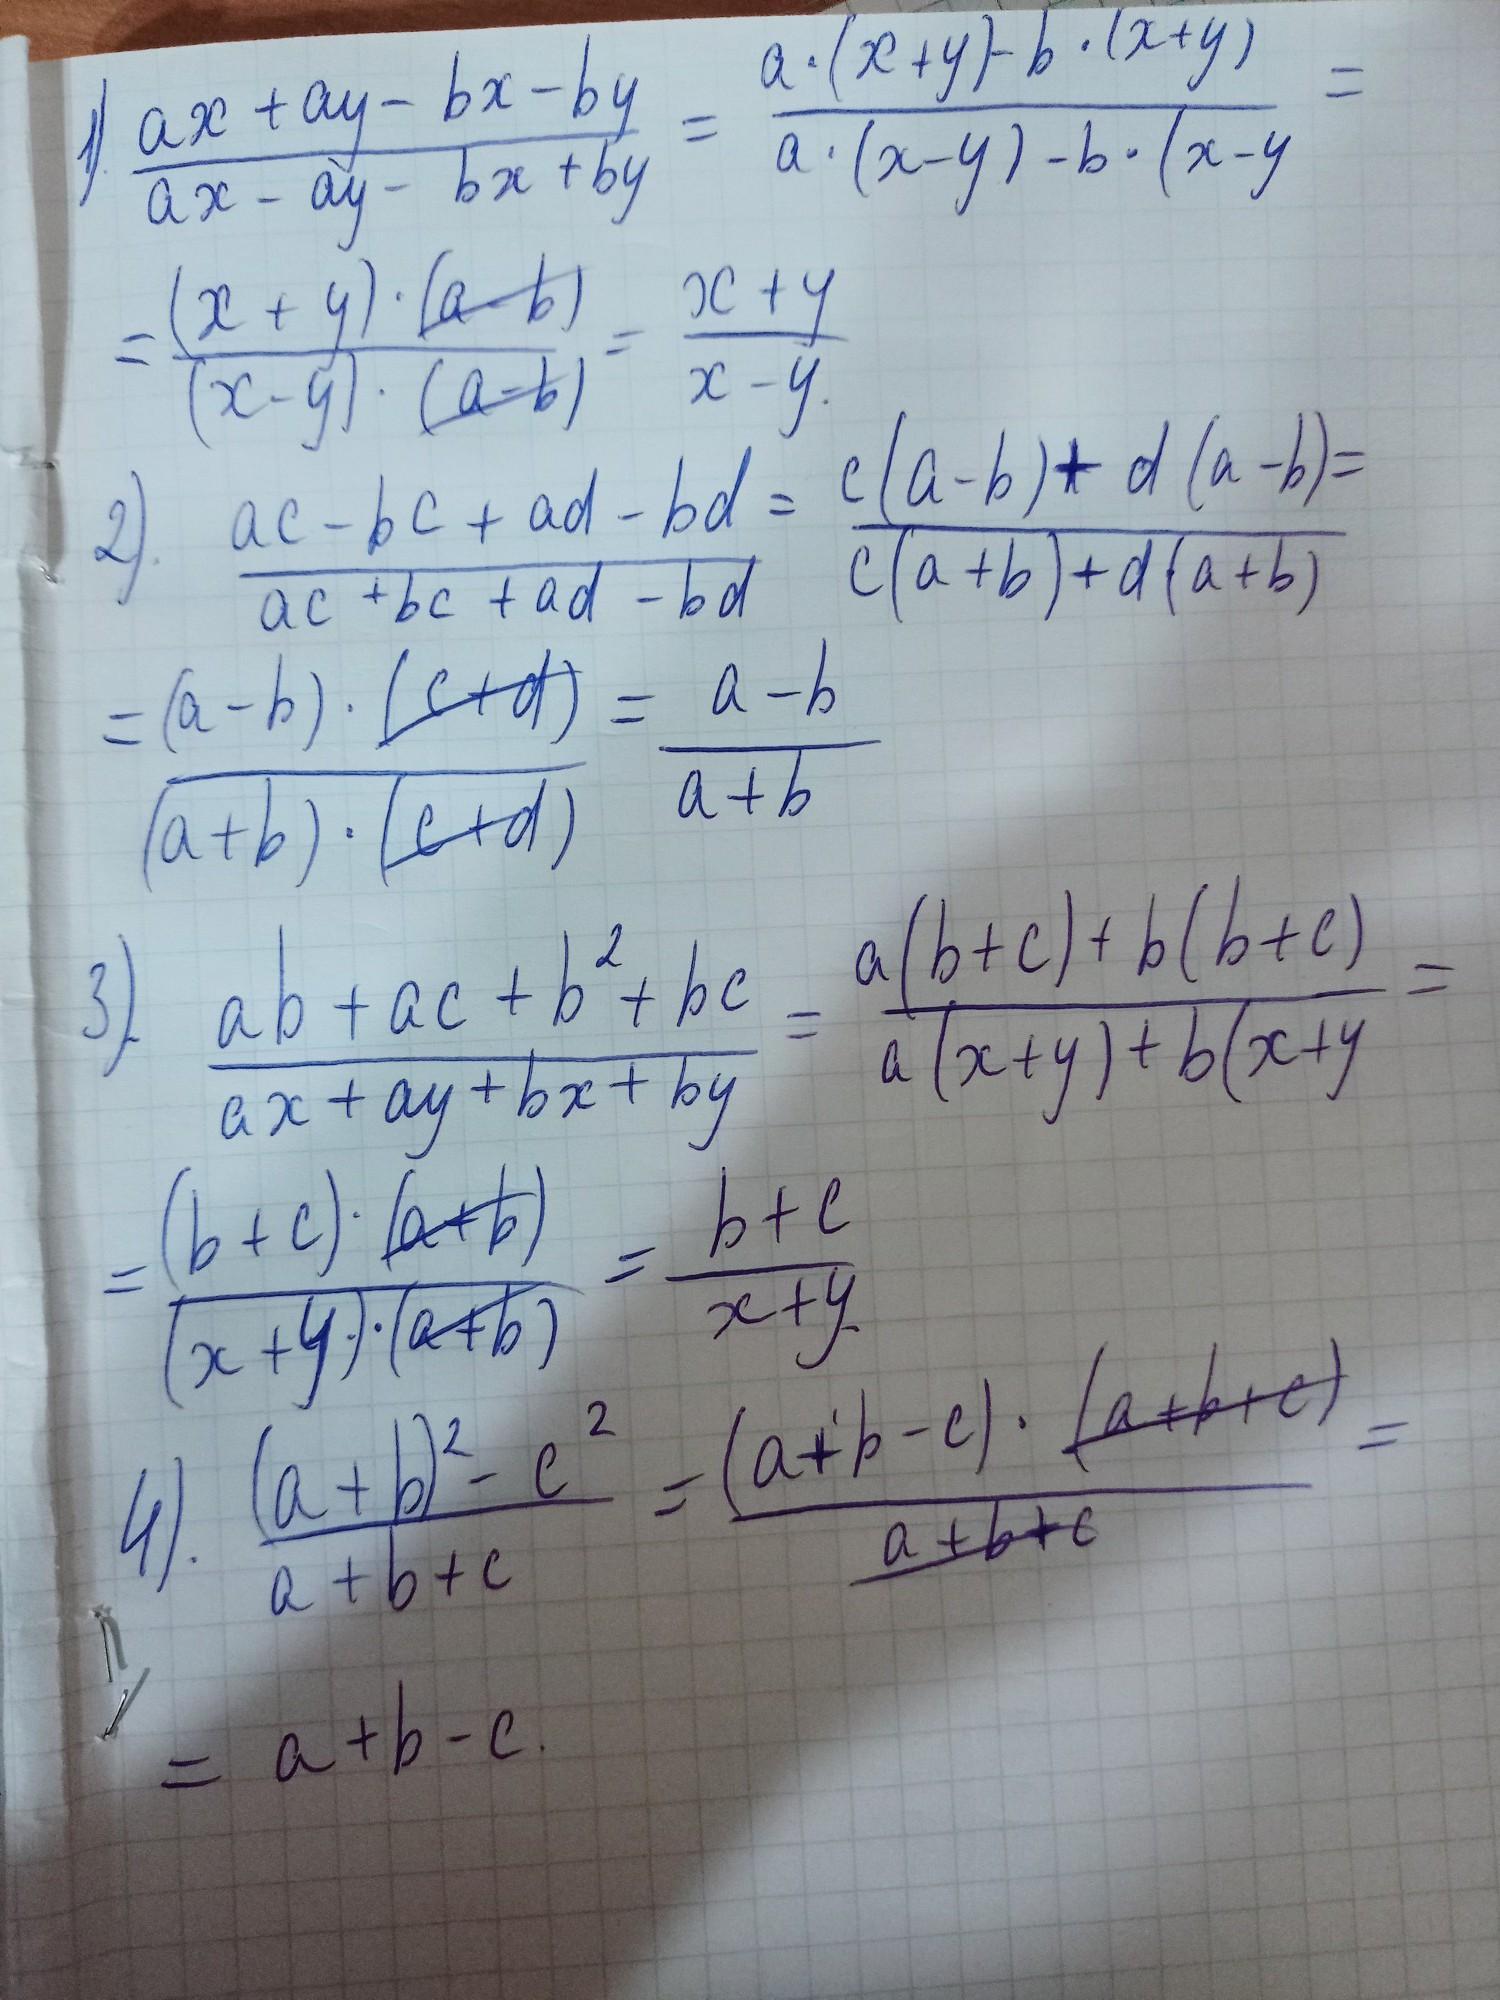 1). (ax + ay - bx - by)/(ax - ay - bx + by) = (a·(x+y) - b·(x+y))/(a·(x-y) - b·(x-y) =
= ((x+y)·(a-b))/((x-y)·(a-b)) = (x+y)/(x-y).
2). (ac - bc + ad - bd)/(ac + bc + ad - bd) = (c(a-b) + d(a-b))/(c(a+b) + d(a+b)) =
= ((a-b)·(c+d))/((a+b)·(c+d)) = (a-b)/(a+b)
3). (ab + ac + b² + bc)/(ax + ay + bx + by) = (a(b+c) + b(b+c))/(a(x+y) + b(x+y) =
= ((b+c)·(a+b))/((x+y)·(a+b)) = (b+c)/(x+y)
4). ((a+b)² - c²)/(a+b+c) = ((a+b-c)·(a+b+c))/(a+b+c) =
= a+b-c.